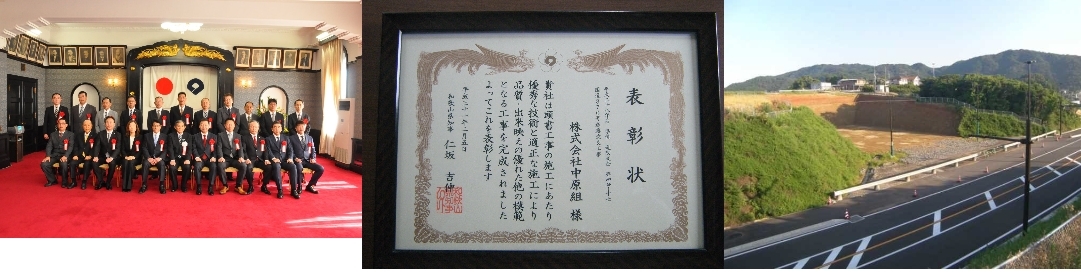 表彰状
株式会社中原組 様
貴社は頭書工事の施工にあたり
優秀な技術と適正な施工により
品質・出来映えの優れた他の模範
となる工事を完成されました
よってこれを表彰します
和歌山県知事 仁坂 吉伸